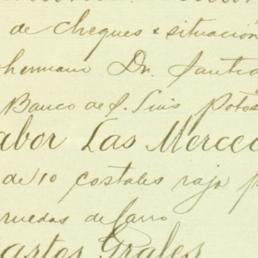 de cheques e situación
hermano Dn. Santia
Banco de S. Luis Potos
abor Las Merced
de 10 costales rojo p
ruedas de carro
astos Grales